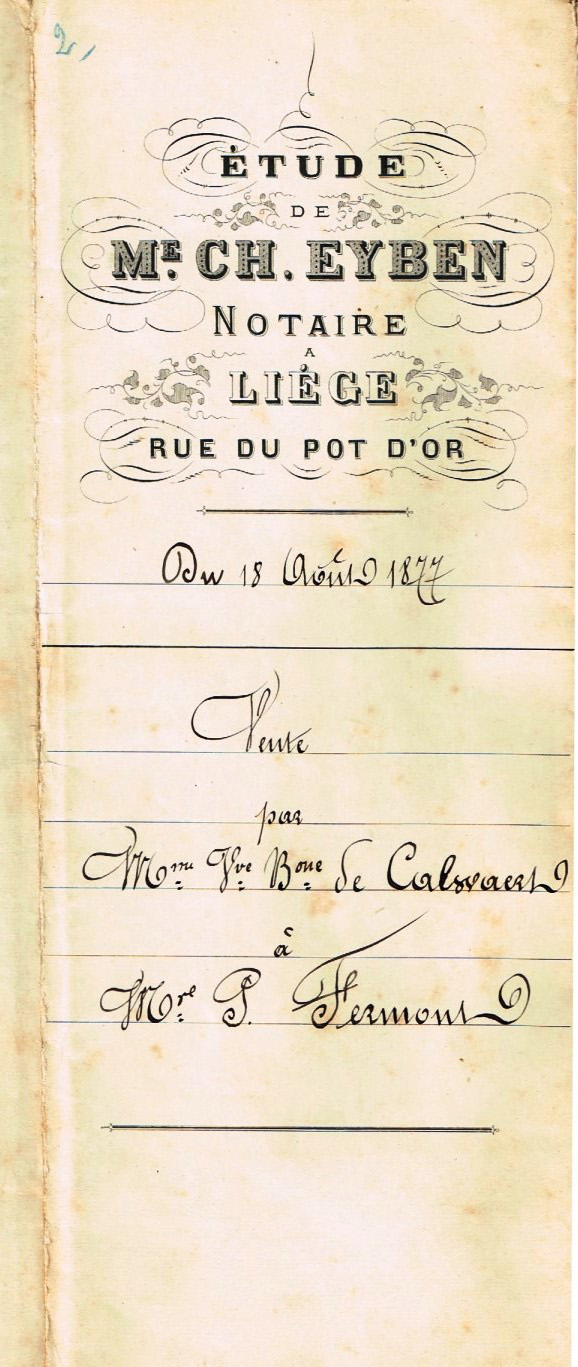 2,
ÉTUDE
DE
ME. CH. EYBEN
NOTAIRE
A
LIÉGE
RUE DU POT D'OR
Du 18 Août 1877
Vente
par
Mme Vve Bone de Calwaert
à
Mre P. Fermont